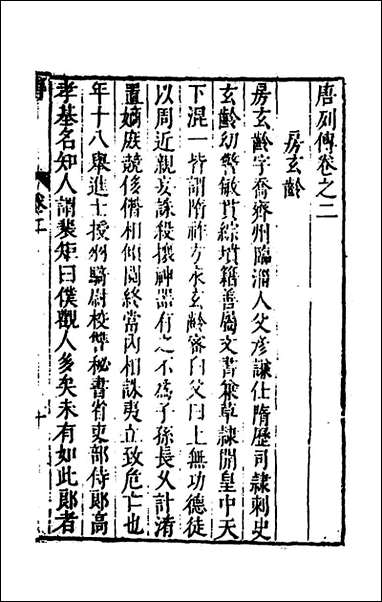 唐列傳卷之二
房玄齡
房玄齡字喬齊州臨淄人父彥謙仕隋歷司隸刺史
玄齡幼警敏貫綜墳籍善屬文書兼草隸開皇中天
下混一皆謂隋祚方永玄齡密白父曰上無功德徒
以周近親妄誅殺攘神器有之不為子孫長久計淆
置嫡庶競侈僭相傾鬩終當內相誅夷立致危亡也
年十八舉進士授羽騎尉校讐秘書省吏部侍郎高
孝基名知人謂裴矩曰僕觀人多矣未有如此郎者